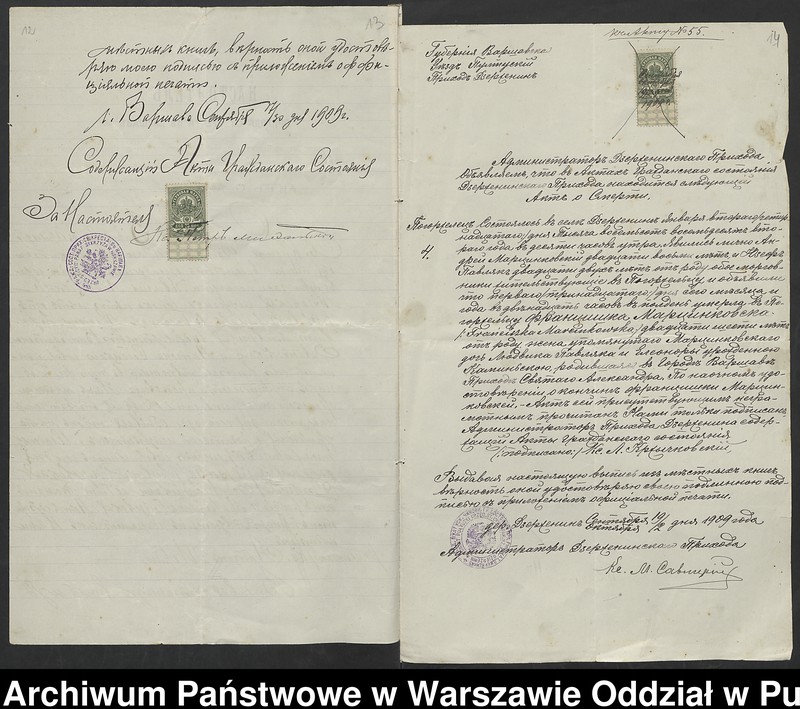 13
мѣстныхъ книгъ, вѣрность оной удостовѣ-
ряю моею подписью съ приложеніемъ оффи-
ціальной печати.
г. Варшава Сентября 17/30 дня 1909 г.
Содержащій Акты Гражданскаго Состоянія
За Настоятеля
14
къ Акту № 55.
Губернія Варшавская
Уѣздъ Пултускій
Приходъ Дзержениnъ
Администраторъ Дзерженинскаго Прихода
объявляетъ, что въ Актахъ Гражданскаго состоянія
Дзерженинскаго Прихода находится слѣдующій
Актъ о Смерти.
Погоржелецъ
4.
Состоялось въ селѣ Дзерженинъ Января втораго/четыр-
надцатаго/ дня тысяча восемьсотъ восемьдесятъ вто-
раго года въ десять часовъ утра. Явились лично Ан-
дрей Марцинковскій двадцати восьми лѣтъ и Іосифъ
Павлякъ двадцати двухъ лѣтъ отъ роду оба моргов-
ники жительствующіе въ Погоржельцу и объявили
что перваго/тринадцатаго/ дня сего мѣсяца и
года въ двѣнадцать часовъ въ полдень умерла въ По-
горжельцу Францишка Марцинковска
/Franciszka Marcinkowska/ двадцати шести лѣтъ
отъ роду, жена упомянутаго Марцинковскаго
дочь Людвика Павляка и Елеоноры урожденною
Калинскою, родившаяся въ Городѣ Варшавѣ
Приходѣ Святаго Александра. По наочномъ удо-
стовѣреніи о кончинѣ Францишки Марцин-
ковской. - Актъ сей присутствующимъ негра-
мотнымъ прочитанъ Нами только подписанъ
Администраторъ Прихода Дзерженина содер-
жащій Акты Гражданскаго состоянія
/подписано:/ Кс. Л. Кржичковскій,
Выдавая настоящую выпись изъ мѣстныхъ книгъ,
вѣрность оной удостовѣряю своею подлинною под-
писью съ приложеніемъ оффиціальной печати.
дер. Дзерженинъ Сентября 19/Октября 2 дня 1909 года
Администраторъ Дзерженинскаго Прихода
Кс. М. Савицкій
Archiwum Państwowe w Warszawie Oddział w Pu